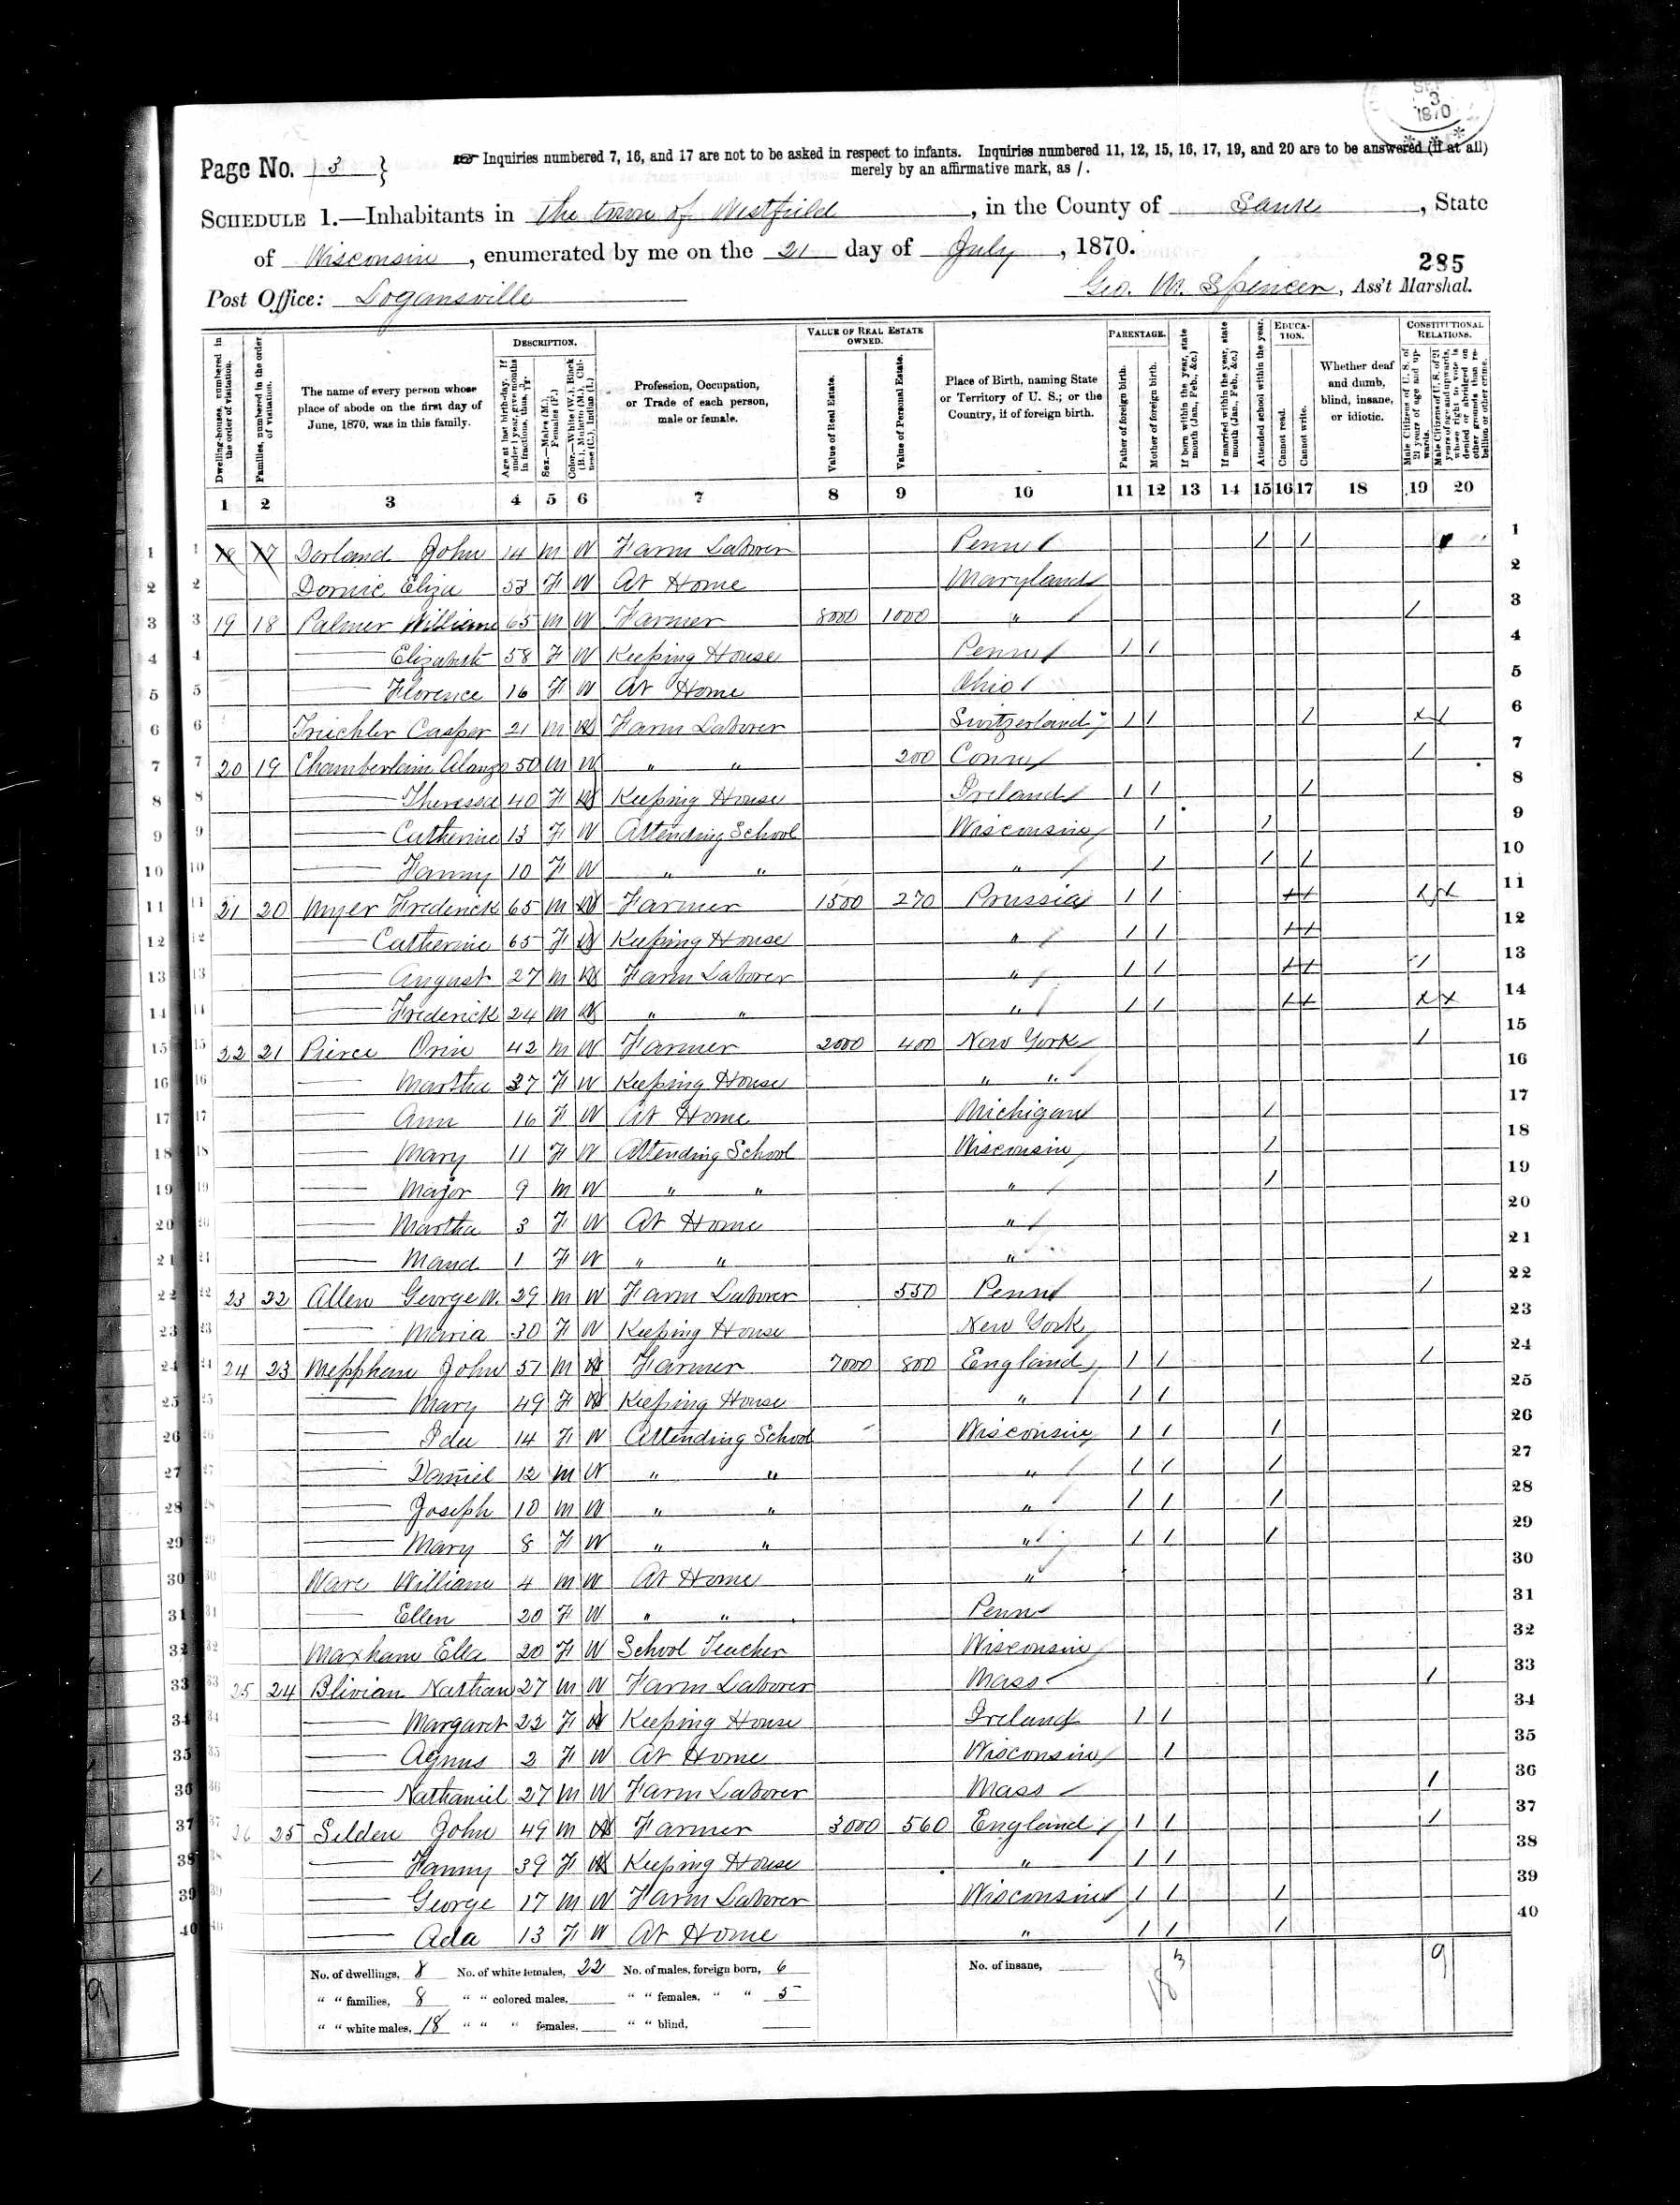 3
1870
Page No. 3 }
Inquiries numbered 7, 16, and 17 are not to be asked in respect to infants. Inquiries numbered 11, 12, 15, 16, 17, 19, and 20 are to be answered (if at all)
merely by an affirmative mark, as /.
SCHEDULE 1.—Inhabitants in The town of Westfield, in the County of Sauk, State
of Wisconsin, enumerated by me on the 21 day of July, 1870.
285
Post Office: Logansville Geo. W. Spencer, Ass't Marshal.
Dwelling-houses, numbered in the order of visitation.
Families, numbered in the order of visitation.
The name of every person whose place of abode on the first day of June, 1870, was in this family.
DESCRIPTION.
Age at last birth-day. If under 1 year, give months in fractions, thus,
Sex.—Males (M.), Females (F.)
Color.—White (W.), Black (B.), Mulatto (M.), Chinese (C.), Indian (I.)
Profession, Occupation, or Trade of each person, male or female.
VALUE OF REAL ESTATE OWNED.
Value of Real Estate.
Value of Personal Estate.
Place of Birth, naming State or Territory of U. S.; or the Country, if of foreign birth.
PARENTAGE.
Father of foreign birth.
Mother of foreign birth.
If born within the year, state month (Jan., Feb., &c.)
If married within the year, state month (Jan., Feb., &c.)
Attended school within the year.
EDUCATION.
Cannot read.
Cannot write.
Whether deaf and dumb, blind, insane, or idiotic.
CONSTITUTIONAL RELATIONS.
Male Citizens of U. S. of 21 years of age and upwards.
Male Citizens of U. S. of 21 years of age and upwards, whose right to vote is denied or abridged on other grounds than rebellion or other crime.
1 2 3 4 5 6 7 8 9 10 11 12 13 14 15 16 17 18 19 20
1 18 17 Dorland John 14 M W Farm Laborer Penn / / 1
2 Eliza 53 F W At Home Maryland 2
3 19 18 Palmer William 65 M W Farmer 8000 1000 " / 3
4 Elizabeth 58 F W Keeping House Penn / / 4
5 Florence 16 F W At Home Ohio 5
6 Casper 21 M W Farm Laborer Switzerland / / / 6
7 20 19 Chamberlain Alonzo 50 M W " " 200 Conn / 7
8 Theressa 40 F W Keeping House Ireland / / / 8
9 Catherine 13 F W Attending School Wisconsin / / 9
10 Fanny 10 F W " " " / / / 10
11 21 20 Myer Frederick 65 M W Farmer 1500 270 Prussia / / 11
12 Catherine 65 F W Keeping House " / / 12
13 August 27 M W Farm Laborer " / / / 13
14 Frederick 24 M W " " " / / 14
15 22 21 Pierce Orin 42 M W Farmer 2000 400 New York / 15
16 Martha 37 F W Keeping House " " 16
17 Ann 16 F W At Home Michigan / 17
18 Mary 11 F W Attending School Wisconsin / 18
19 Major 9 M W " " " / 19
20 Martha 3 F W At Home " 20
21 Maud 1 F W " " " 21
22 23 22 Allen George W. 29 M W Farm Laborer 550 Penn / 22
23 Maria 30 F W Keeping House New York 23
24 24 23 Mepham John 51 M W Farmer 7000 800 England / / / 24
25 Mary 49 F W Keeping House " / / 25
26 Ida 14 F W Attending School Wisconsin / / / 26
27 Daniel 12 M W " " " / / / 27
28 Joseph 10 M W " " " / / / 28
29 Mary 8 F W " " " / / / 29
30 Ware William 4 M W At Home " 30
31 Ellen 20 F W " " Penn 31
32 Maxham Ella 20 F W School Teacher Wisconsin 32
33 25 24 Blivian Nathan 27 M W Farm Laborer Mass / 33
34 Margaret 22 F W Keeping House Ireland / / 34
35 Agnus 2 F W At Home Wisconsin / 35
36 Nathaniel 27 M W Farm Laborer Mass / 36
37 26 25 Selden John 49 M W Farmer 3000 560 England / / / 37
38 Fanny 39 F W Keeping House " / / 38
39 George 17 M W Farm Laborer Wisconsin / / / 39
40 Ada 13 F W At Home " / / / 40
No. of dwellings, 8 No. of white females, 22 No. of males, foreign born, 6 No. of insane, 9
" " families, 8 " " colored males, " " females, " " 5
" " white males, 18 " " " females, " " blind,